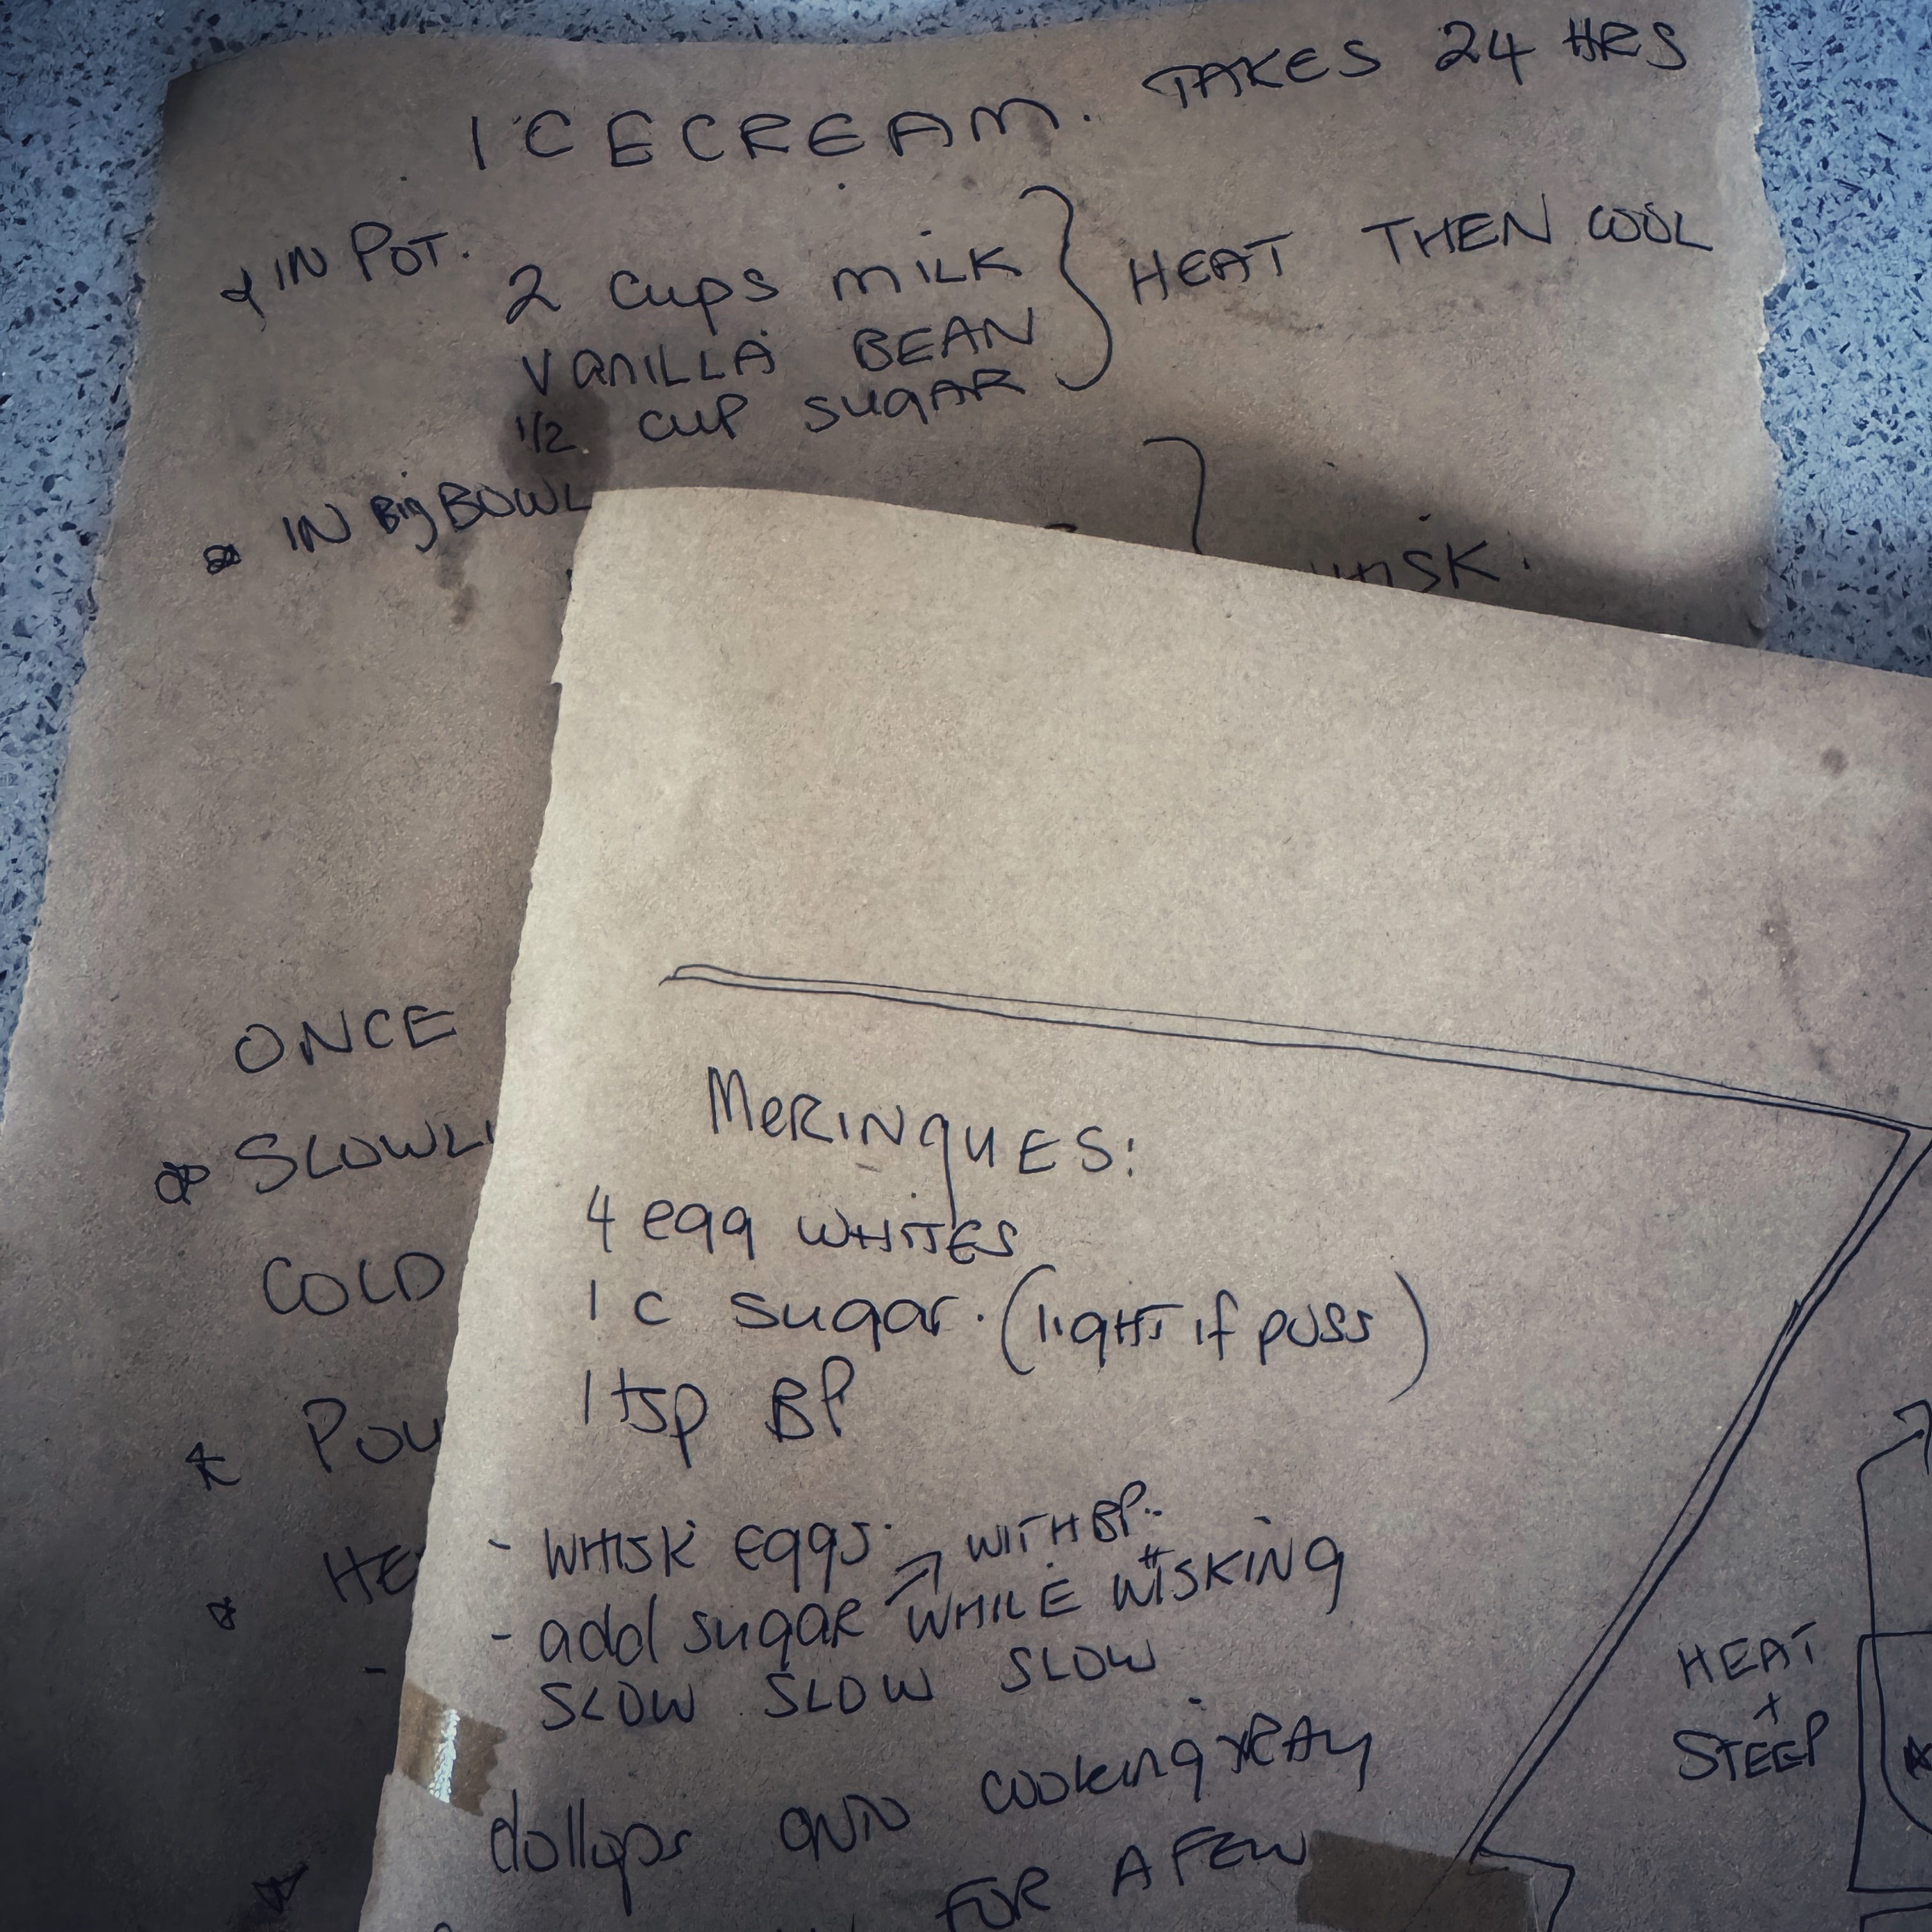 ICECREAM. TAKES 24 HRS
IN POT.
2 cups MILK
VANILLA BEAN
1/2 CUP SUGAR
HEAT THEN COOL
IN Big BOWL
ONCE
SLOWL
COLD
POU
HE
MERINQUES:
4 egg WHITES
1 c sugar. (light if puss)
1 tsp BP
- WHISK eggs. WITH BP.
- add sugar WHILE WHISKING
SLOW SLOW SLOW
dollops ONTO cooking TRAY
FOR A FEW
HEAT
+
STEEP